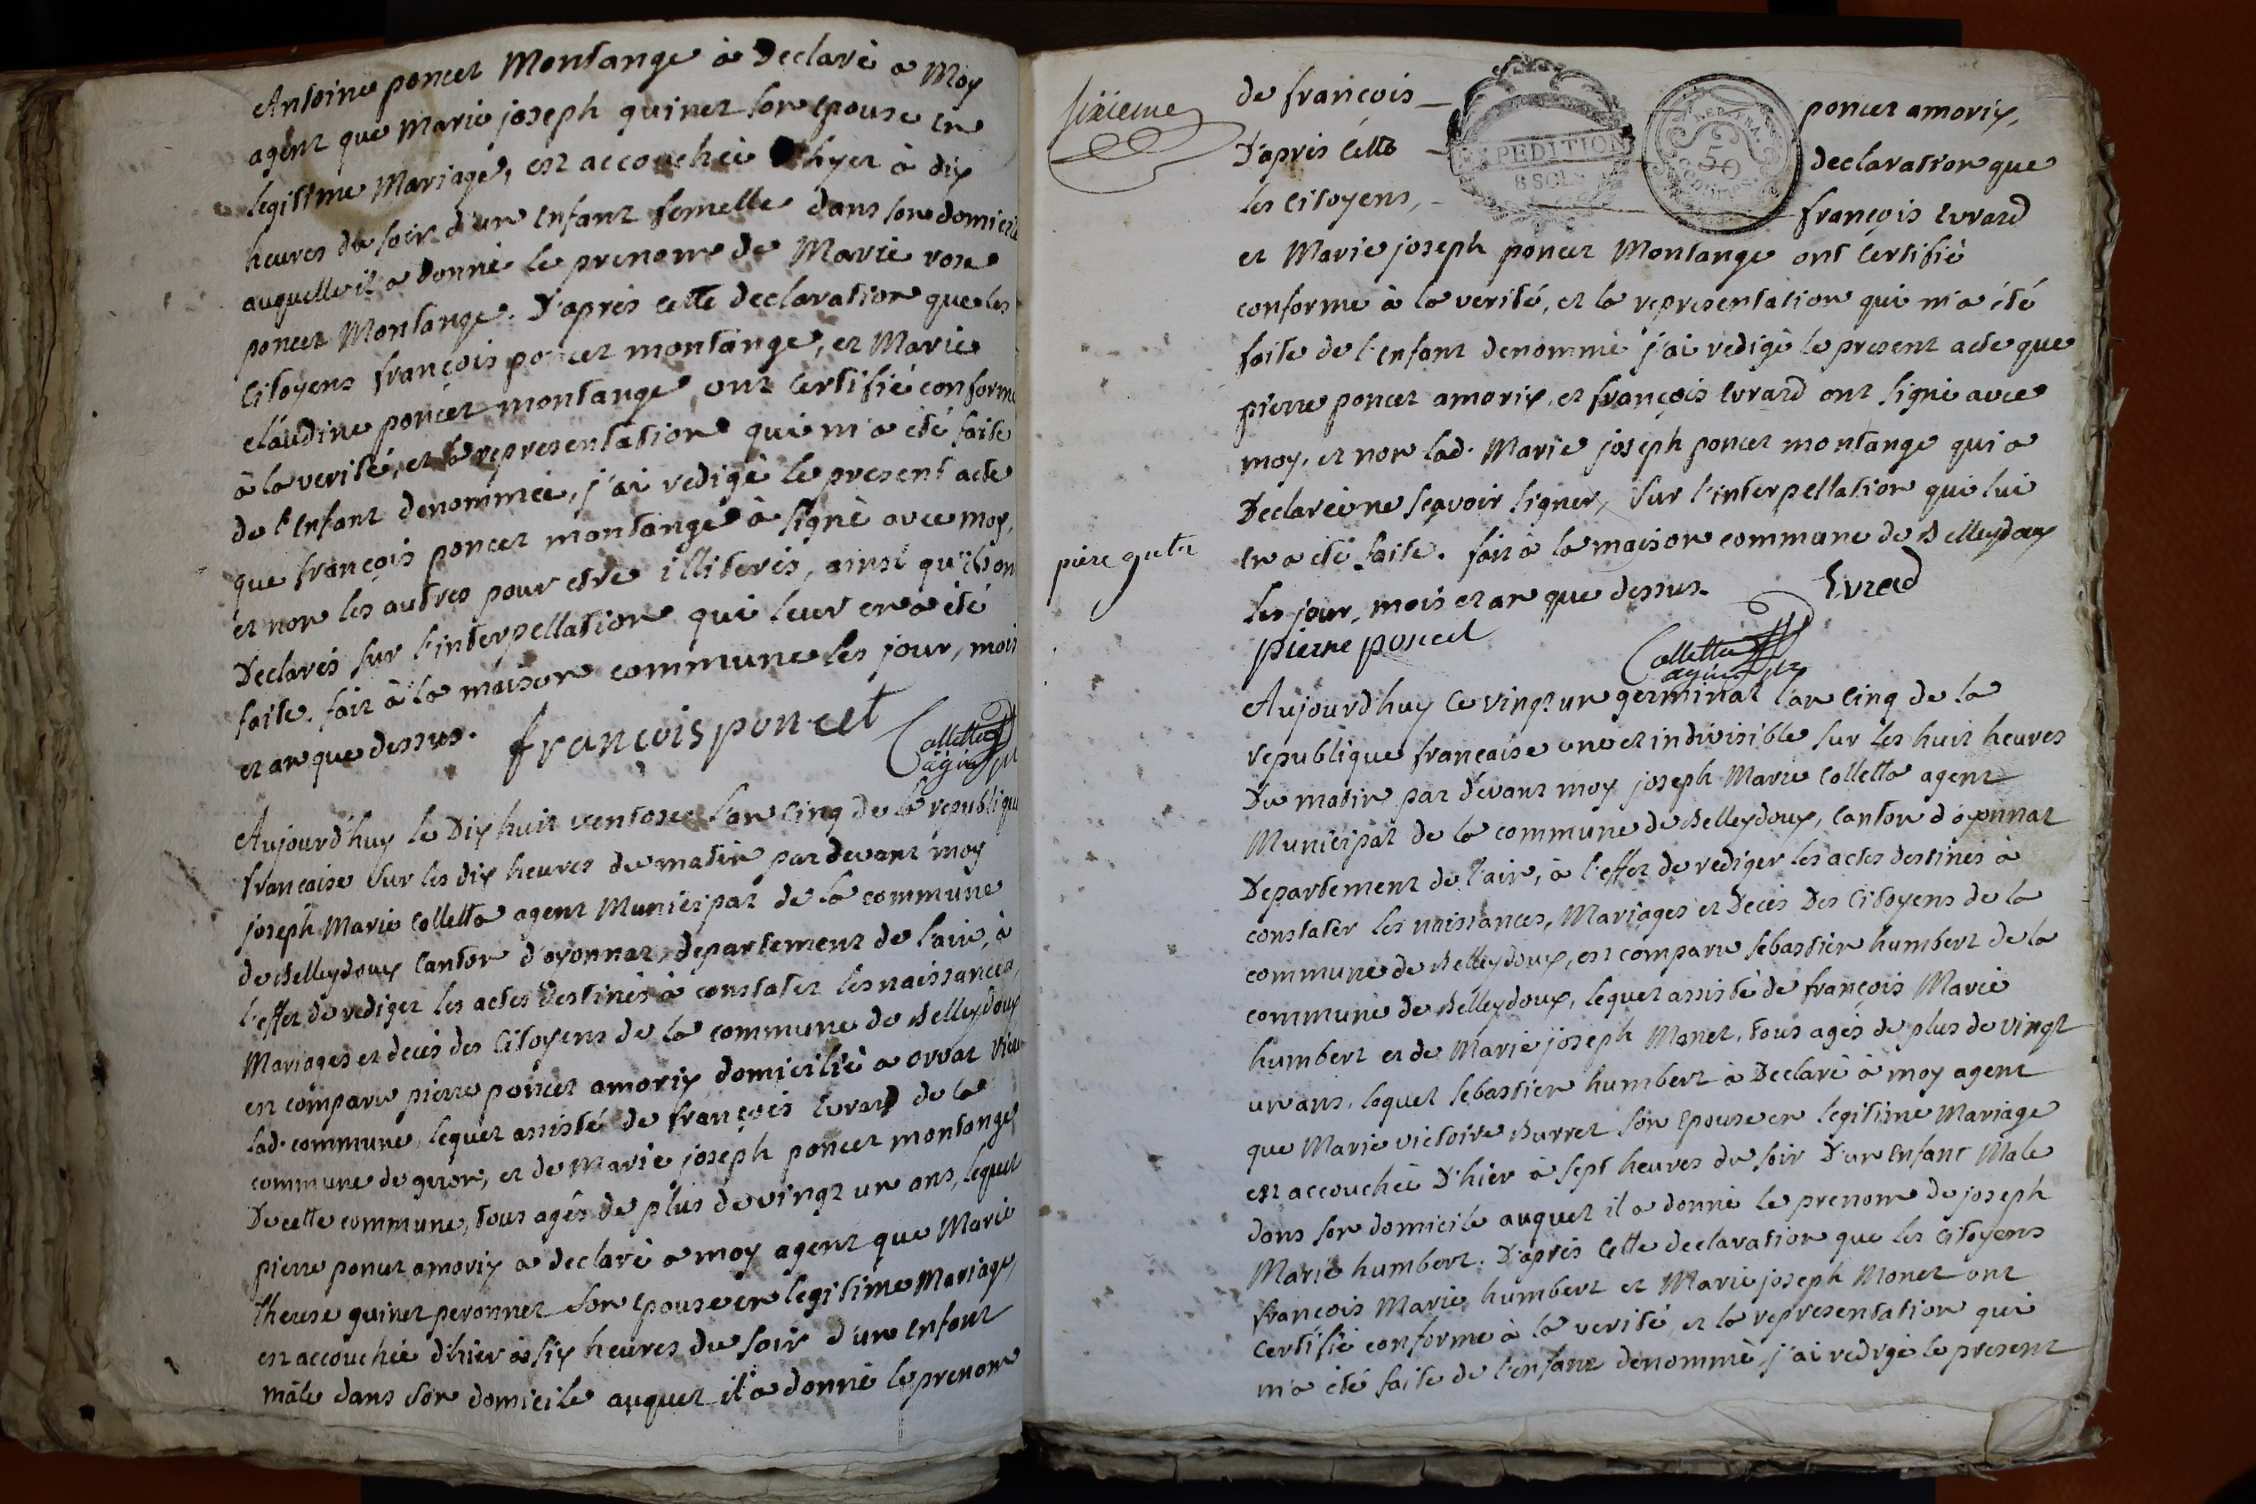 Antoine poncet Montange à Declaré a Moy
agent que Marie joseph quinet son epouse en
legitime Mariage, est accouchée hyer à dix
heures du soir d'un enfant femelle dans son domicile
auquelle il a donné le prenom de Marie rose
poncet Montange. D'après cette declaration que les
Citoyens françois poncet montange, et Marie
claudine poncet montange ont certifié conforme
à la verité, et la representation qui m'a été faite
de l'enfant denommée, j'ai redigé le present acte
que françois poncet montange à signé avec moy,
et non les autres pour etre illiterés, ainsi qu'ils on
Declarés sur l'interpellation qui leur en a été
faite. fait à la maison commune les jour, mois
et an que dessus. françois poncet
Colletta
agent
Aujourd'huy le Dix huit ventose l'an cinq de la republique
francaise sur les dix heures du matin par devant moy
joseph Marie Colletta agent Municipal de la commune
de Belleydoux canton d'oyonnat, departement de l'ain, à
l'effet de rediger les actes destinés à constater les naissances,
Mariages et decès des Citoyens de la commune de Belleydoux
est comparu pierre poncet amorix domicilié a orvat
lad. commune, lequel assisté de françois Evrard de la
commune de giron, et de Marie joseph poncet montange
De cette commune, tous agés de plus de vingt un ans, lequel
pierre poncet amorix a declaré a moy agent que Marie
therese quinet peronnet son epouse en legitime Mariage,
est accouchée d'hier à six heures du soir d'un enfant
mâle dans son domicile auquel il a donné le prenom
sixieme
de françois poncet amorix,
D'après cette declaration que
les citoyens, françois Evrard
EXPEDITION
8 SOLS
REP. FRA.
50
et Marie joseph poncet Montange ont certifié
conforme à la verité, et la representation qui m'a été
faite de l'enfant denommé j'ai redigé le present acte que
pierre poncet amorix, et françois Evrard ont signé avec
moy, et non lad. Marie joseph poncet montange qui a
Declarée ne sçavoir signer, sur l'interpellation qui lui
en a été faite. fait à la maison commune de Belleydoux
les jour, mois et an que dessus. Evrad
pierre poncet
Colletta
agent
Aujourd'huy ce vingt un germinal l'an cinq de la
republique francaise une et indivisible sur les huit heures
Du matin par devant moy joseph Marie Colletta agent
Municipal de la commune de Belleydoux, canton d'oyonnat
Departement de l'ain, à l'effet de rediger les actes destinés à
constater les naissances, Mariages et Decès Des Citoyens de la
commune de Belleydoux, est comparu sebastien humbert de la
commune de Belleydoux, lequel assisté de françois Marie
humbert et de Marie joseph Monet, tous agés de plus de vingt
un ans, lequel sebastien humbert à Declaré à moy agent
que Marie victoire Burret son epouse en legitime Mariage
est accouchée D'hier à sept heures du soir D'un enfant Male
dans son domicile auquel il a donné le prenom de joseph
Marie humbert. D'après cette declaration que les citoyens
françois Marie humbert et Marie joseph Monet ont
certifié conforme à la verité, et la representation qui
m'a été faite de l'enfant denommé, j'ai redigé le present